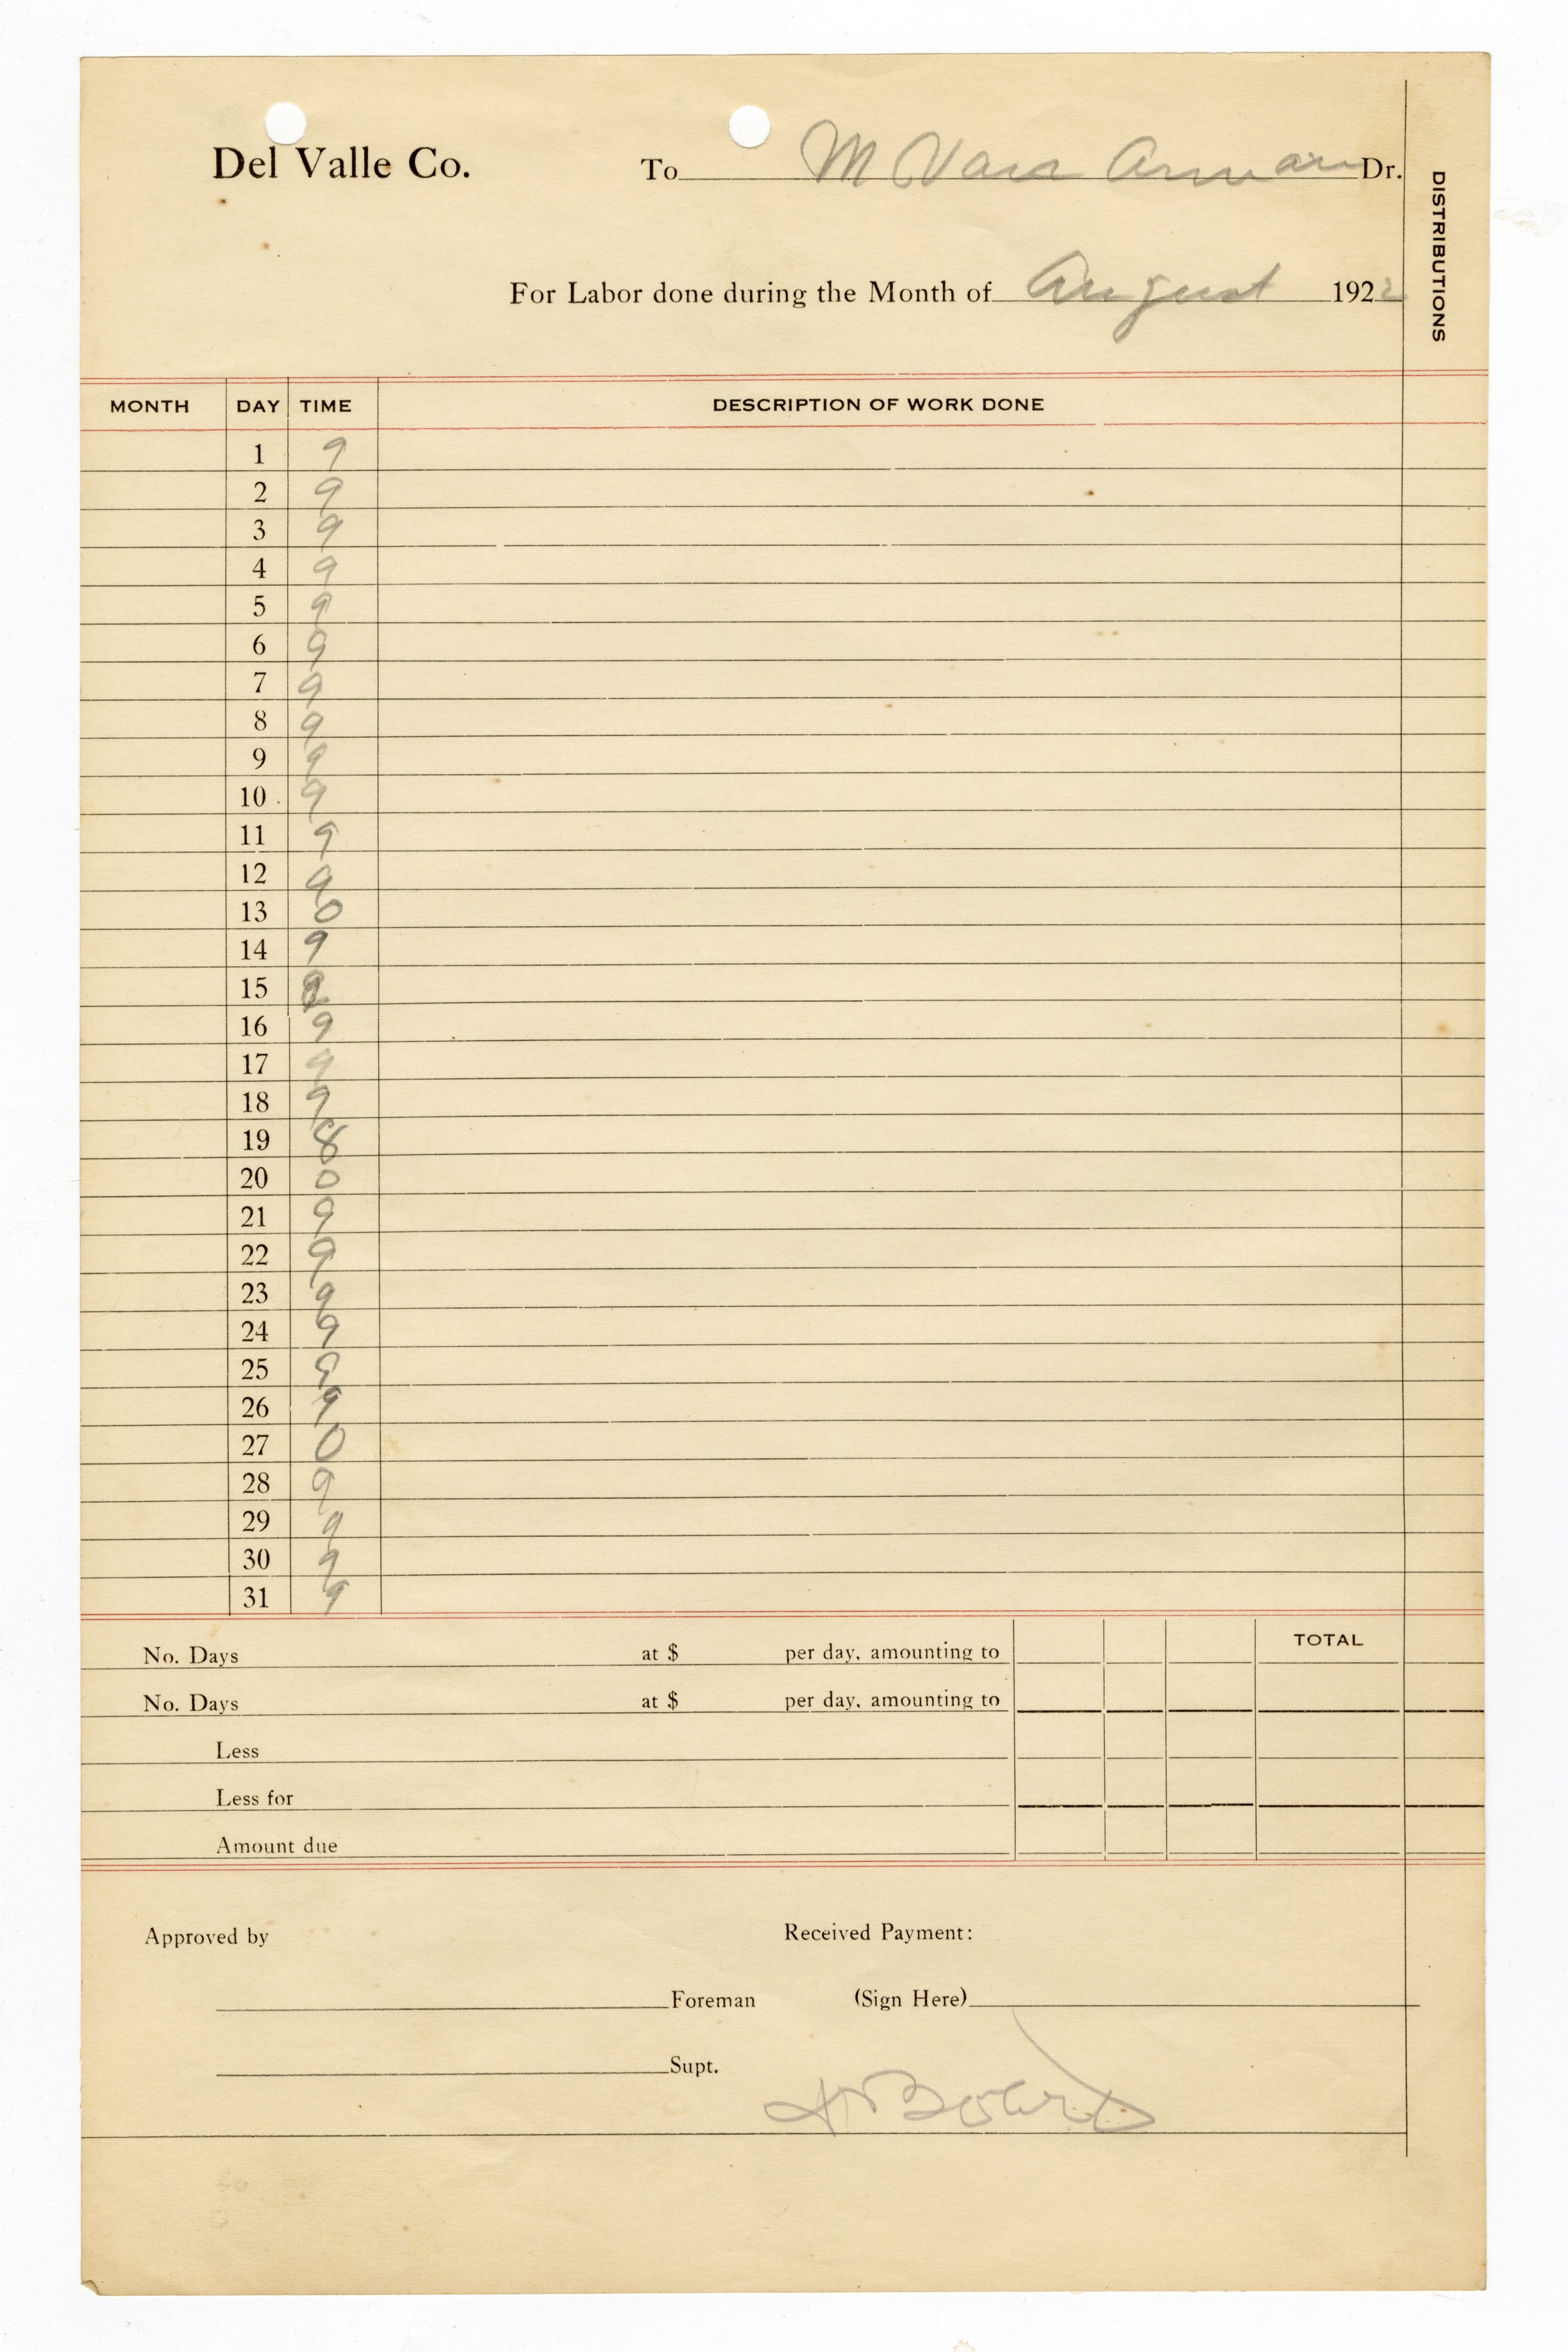 Del Valle Co. To M Dr.
For Labor done during the Month of August 1922
DISTRIBUTIONS
MONTH DAY TIME DESCRIPTION OF WORK DONE
1 9
2 9
3 9
4 9
5 9
6 9
7 9
8 9
9 9
10 9
11 9
12 9
13 0
14 9
15
16 9
17 9
18 9
19 8
20 0
21 9
22 9
23 9
24 9
25 9
26 9
27 0
28 9
29 9
30 9
31 9
TOTAL
No. Days at $ per day, amounting to
No. Days at $ per day, amounting to
Less
Less for
Amount due
Approved by Received Payment:
Foreman (Sign Here)
Supt.